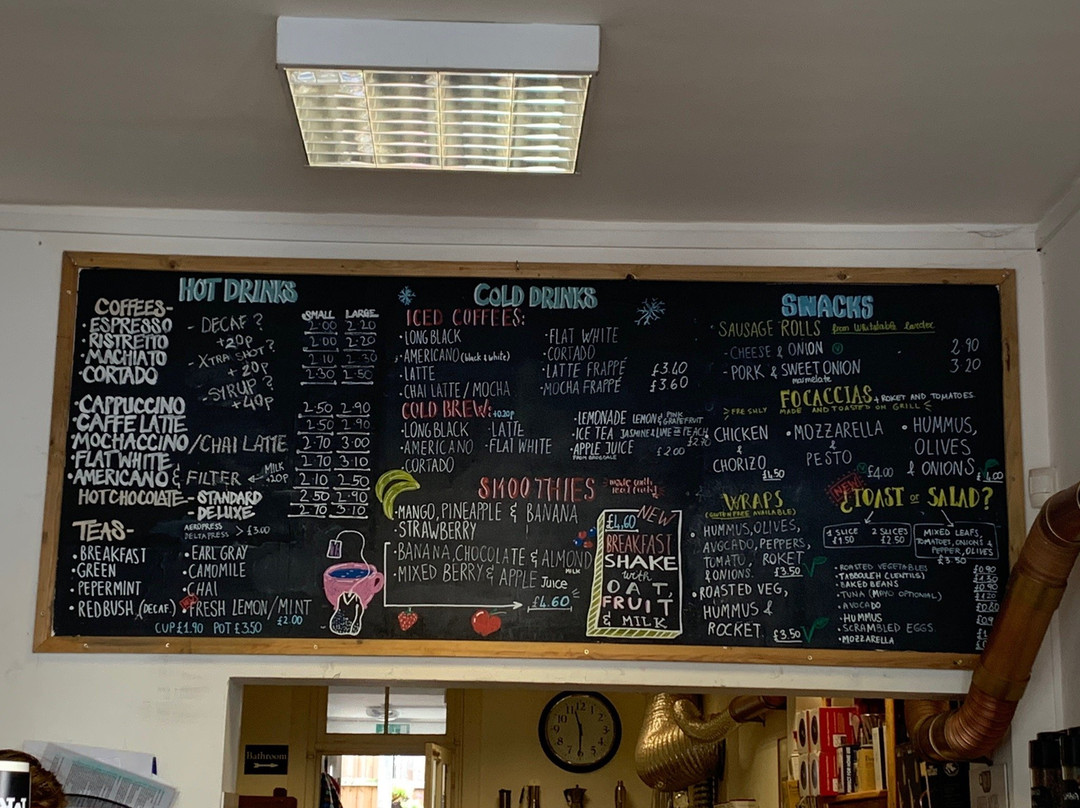 HOT DRINKS
COFFEES-
SMALL LARGE
• ESPRESSO 2.00 2.20
• RISTRETTO 2.00 2.20
• MACHIATO 2.10 2.30
• CORTADO 2.30 2.50
- DECAF?
+20p
- XTRA SHOT?
+ 20p
- SYRUP?
+40p
• CAPPUCCINO 2.50 2.90
• CAFFE LATTE 2.50 2.90
• MOCHACCINO/CHAI LATTE 2.70 3.00
• FLAT WHITE 2.70 3.10
• AMERICANO & FILTER 2.10 2.50
MILK +20p
HOT CHOCOLATE - STANDARD 2.50 2.90
- DELUXE 2.70 3.10
TEAS-
AEROPRESS
DELTAPRESS > £3.00
• BREAKFAST
• GREEN
• PEPERMINT
• REDBUSH (DECAF)
• EARL GRAY
• CAMOMILE
• CHAI
• FRESH LEMON/MINT
£2.00
CUP £1.90 POT £3.50
COLD DRINKS
ICED COFFEES:
• LONG BLACK
• AMERICANO (black & white)
• LATTE
• CHAI LATTE / MOCHA
• FLAT WHITE
• CORTADO
• LATTE FRAPPÉ £3.40
• MOCHA FRAPPÉ £3.60
COLD BREW: +020p
• LONG BLACK
• AMERICANO
• CORTADO
• LATTE
• FLAT WHITE
• LEMONADE LEMON & PINK GRAPEFRUIT
• ICE TEA JASMINE & LIME = PEACH
£2.70
• APPLE JUICE £2.00
SMOOTHIES made with real fruit
• MANGO, PINEAPPLE & BANANA
• STRAWBERRY
• BANANA, CHOCOLATE & ALMOND MILK
• MIXED BERRY & APPLE Juice
£4.60
£4.60 NEW
BREAKFAST
SHAKE
with
OAT,
FRUIT
& MILK
SNACKS
• SAUSAGE ROLLS from Whitstable larder
- CHEESE & ONION 2.90
- PORK & SWEET ONION 3.20
marmelate
FOCACCIAS + ROKET AND TOMATOES.
FRESHLY MADE AND TOASTED ON GRILL
• CHICKEN
&
CHORIZO
£4.50
• MOZZARELLA
&
PESTO
£4.00
• HUMMUS,
OLIVES
& ONIONS
£4.00
WRAPS
(GLUTEN FREE AVAILABLE)
• HUMMUS, OLIVES,
AVOCADO, PEPPERS,
TOMATO, ROKET
& ONIONS. £3.50
• ROASTED VEG,
HUMMUS &
ROCKET £3.50
NEW
¿TOAST or SALAD?
1 SLICE £1.50
2 SLICES £2.50
MIXED LEAFS,
TOMATOES, ONIONS &
PEPPER, OLIVES
£3.50
• ROASTED VEGETABLES £0.90
• TABBOULEH (LENTILS)
• BAKED BEANS £0.90
• TUNA (MAYO OPTIONAL) £1.20
• AVOCADO £0.80
• HUMMUS
• SCRAMBLED EGGS
• MOZZARELLA
Bathroom